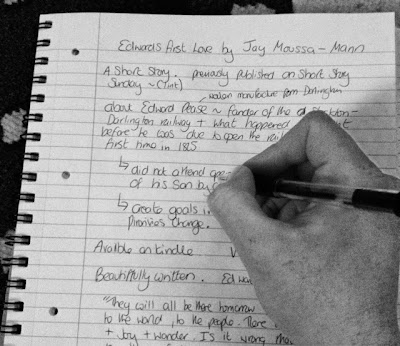 Edwards First Love by Jay Moussa-Mann
A Short Story. previously published on Short Story
Sunday ~ (Tint)
woolen manufacturer from Darlington
about Edward Pease ~ founder of the Stockton-
Darlington railway + what happened
before he was due to open the
first time in 1825
↳ did not attend
of his son
↳ create goals in
Priorities change.
Available on Kindle
Beautifully written. Edward
"They will all be there tomorrow
to the world, to the people. There
+ Joy + wonder. Is it wrong